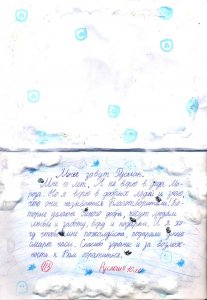 Меня зовут Руслан.
Мне 10 лет. Я не верю в деда Мо-
роза. Но я верю в добрых людей и знаю,
что они называются благотворители! Ко-
торые делают много добра, несут людям
любовь и заботу, веру и подарки. И я хо-
чу чтобы мне пожалуйста, подарили
смарт часы. Спасибо заранее и за возмож-
ность к Вам обратиться.
Руслан